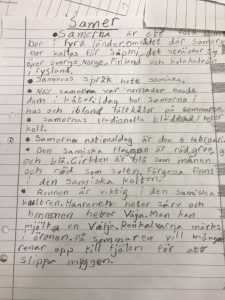 Samer
• Samerna är ett
bor i fyra länder. området där samerna
bor kallas för Sápmi, det sträcker sig
över sverge, Norge, Finland och kolahalvön
i ryssland.
• Samernas språk hete samiska.
• När samerna var nomader bodde
dom i kåtor, idag bor samerna i
hus och ibland tältkåtor på sommaren.
• Samernas tradionella klädnad, heter
kolt.
• Samernas nationaldag är den 6 februari
• Den samiska flaggan är röd, grön, g
och blå. Cirklen är blå som månen
och röd som solen. Färgena finns
i den samiska kolten.
• Rennen är viktig i den samiska
kulturen. Hanrenen heter sarv och
honrenen heter Vaja. Man kan
mjölka en Vaja. Renkalvarna märks
i öronen. På sommaren vill många
renar upp till fjällen för att
slippa myggen.